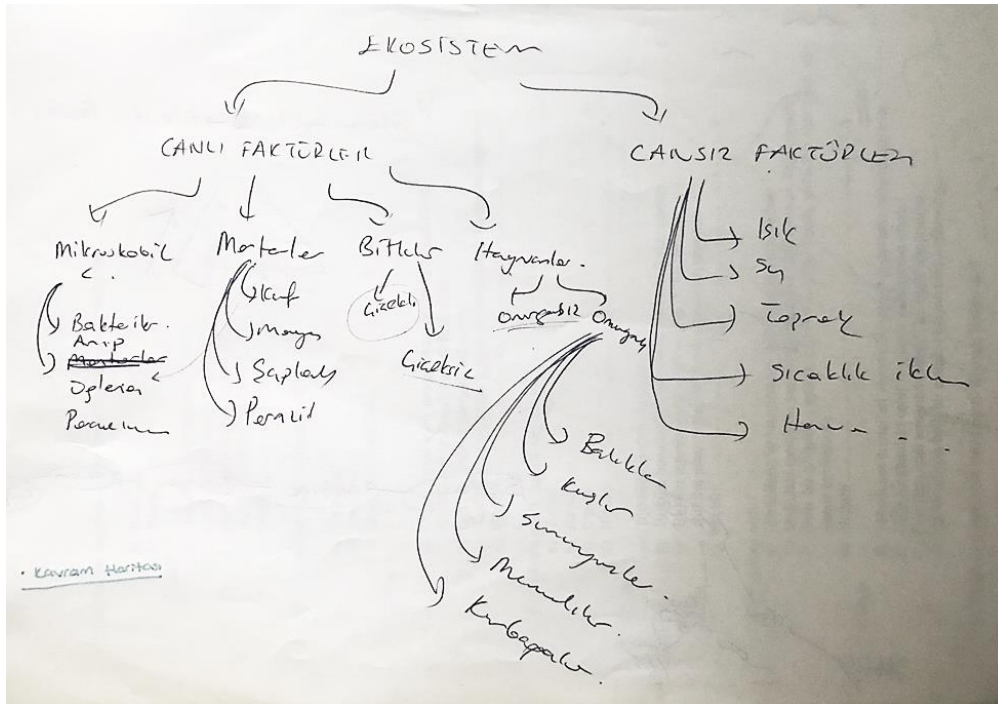 EKOSİSTEM
CANLI FAKTÖRLER
CANSIZ FAKTÖRLER
Mikroskobik
Bakteriler.
Amip
Öglena
Mantarlar
Küf
Maya
Şapkalı
Parazit
Bitkiler
Çiçekli
Çiçeksiz
Hayvanlar.
Omurgasız
Omurgalı
Balıklar
Kuşlar
Sürüngenler.
Memeliler.
Kurbağalar.
Işık
Su
Toprak
Sıcaklık iklim
Hava
• Kavram Haritası